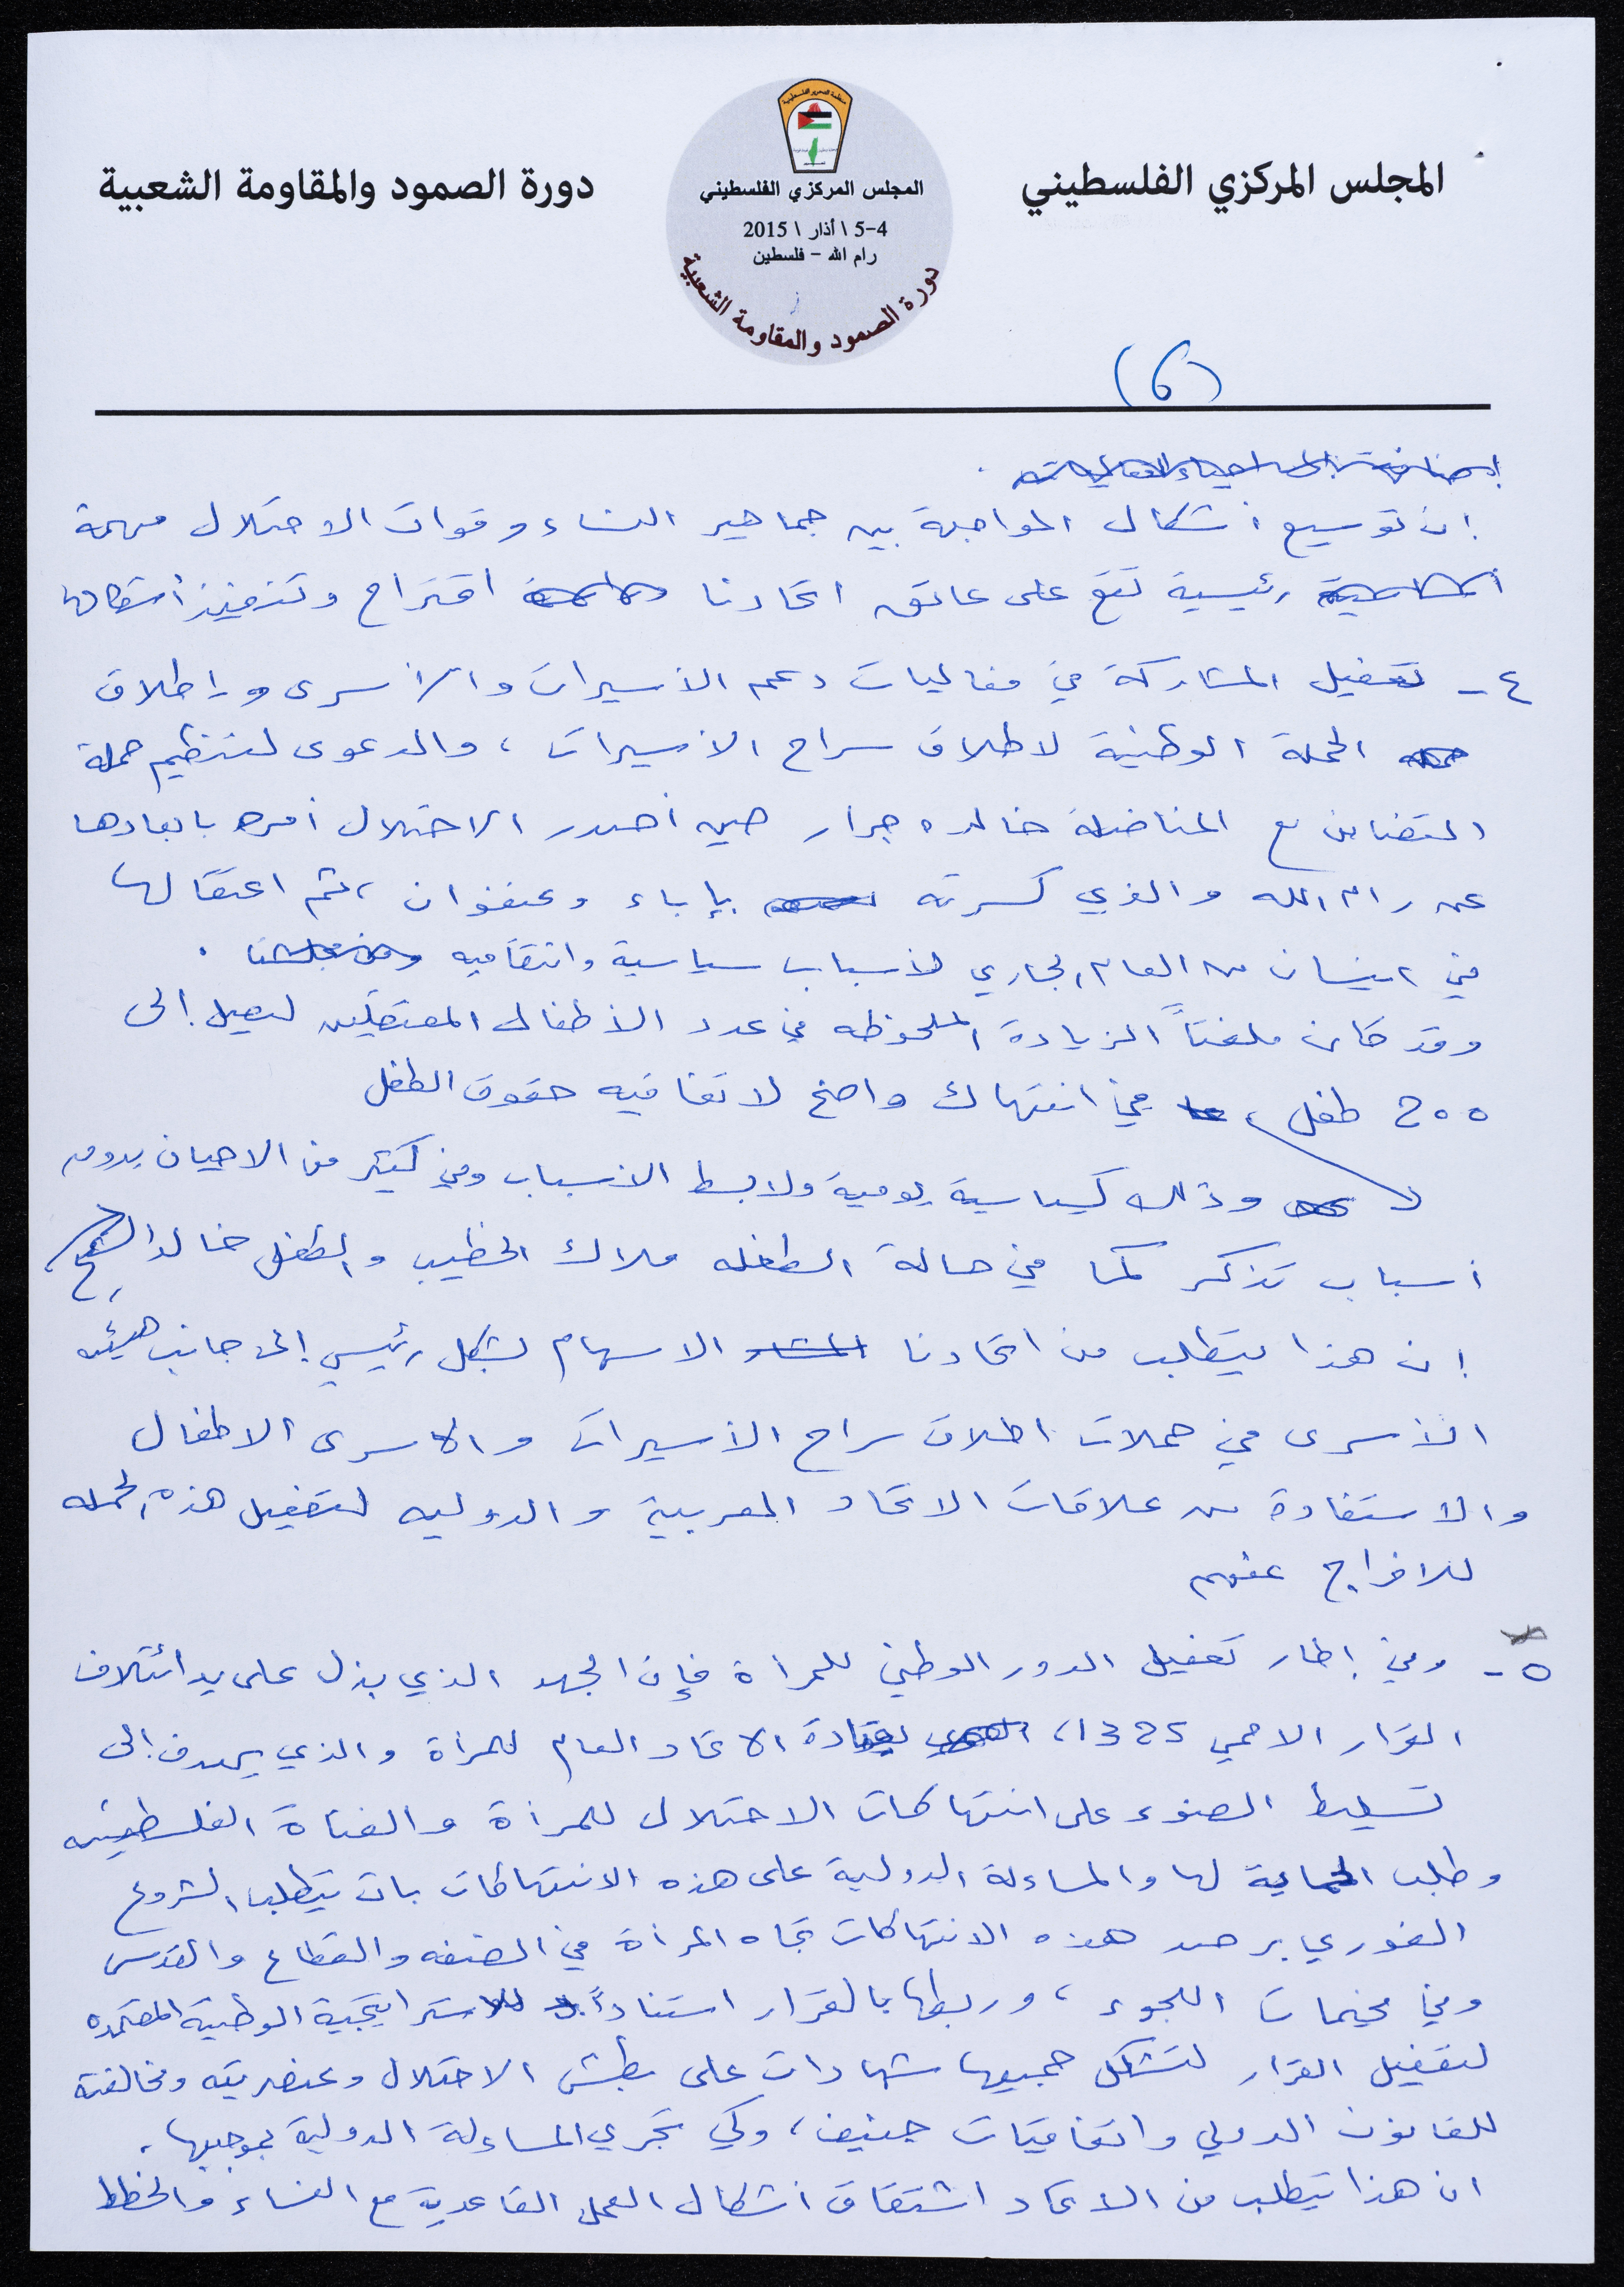 المجلس المركزي الفلسطيني
منظمة التحرير الفلسطينية
المجلس المركزي الفلسطيني
4-5 \ أذار \ 2015
رام الله - فلسطين
دورة الصمود والمقاومة الشعبية
دورة الصمود والمقاومة الشعبية
(6)
إن توسيع أشكال المواجهة بين جماهير النساء وقوات الاحتلال مهمة
رئيسية تقع على عاتق اتحادنا اقتراح وتنفيذ أشكالها
٤- تفعيل المشاركة في فعاليات دعم الأسيرات والأسرى وإطلاق
الحملة الوطنية لاطلاق سراح الأسيرات ، والدعوى لتنظيم حملة
التضامن مع المناضلة خالده جرار حين أصدر الاحتلال أمره بابعادها
عن رام الله والذي كسرته بإباء وعنفوان ، ثم اعتقالها
في ٢ نيسان من العام الجاري لأسباب سياسية وانتقاميه .
وقد كان ملفتاً الزيادة الملحوظه في عدد الأطفال المعتقلين ليصل إلى
200 طفل ، في انتهاك واضح لاتفاقيه حقوق الطفل
وذلك كسياسية يومية ولابسط الأسباب وفي كثير من الاحيان بدون
أسباب تذكر كما في حالة الطفله ملاك الخطيب والطفل خالد الشيخ ،
إن هذا يتطلب من اتحادنا الاسهام بشكل رئيسي إلى جانب هيئه
الأسرى في حملات اطلاق سراح الأسيرات والأسرى الاطفال
والاستفادة من علاقات الاتحاد العربية والدوليه لتفعيل هذه الحمله
للافراج عنهم
٥- وفي إطار تفعيل الدور الوطني للمرأة فإن الجهد الذي بذل على يد ائتلاف
القرار الاممي 1325 ، بقيادة الاتحاد العام للمرأة والذي يهدف إلى
تسليط الضوء على انتهاكات الاحتلال للمرأة والفتاة الفلسطينيه
وطلب الحماية لها والمساءلة الدولية على هذه الانتهاكات بات يتطلب الشروع
الفوري برصد هذه الانتهاكات تجاه المرأة في الضفه والقطاع والقدس
وفي مخيمات اللجوء ، وربطها بالقرار استناداً للاستراتيجية الوطنية المعتمده
لتفعيل القرار لتشكل جميعها شهادات على بطش الاحتلال وعنصريته ومخالفته
للقانون الدولي واتفاقيات جنيف ، وكي تجري المساءلة الدولية بموجبها .
ان هذا يتطلب من الاتحاد اشتقاق أشكال العمل القاعدية مع النساء والخطط